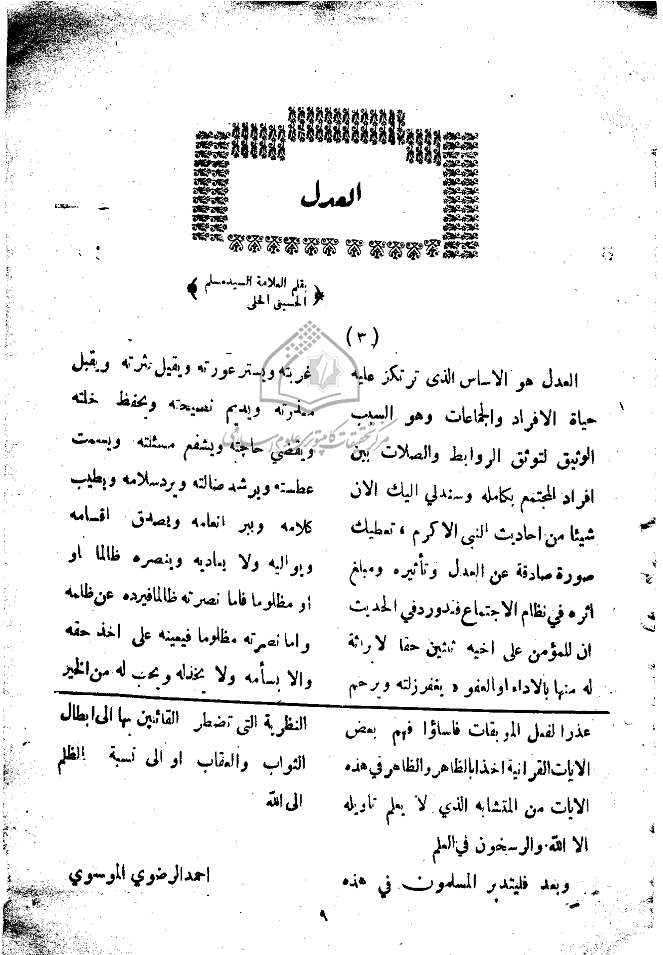 العدل
بقلم العلامة السيد مسلم
الحسيني الحلي
(٣)
العدل هو الاساس الذى ترتكز عليه
حياة الافراد والجماعات وهو السبب
الوثيق لتوثق الروابط والصلات بين
افراد المجتمع بكامله وسندلي اليك الان
شيئا من احاديث النبى الاكرم ، تعطيك
صورة صادقة عن العدل وتأثيره ومبلغ
اثره في نظام الاجتماع فيدوردفي الحديث
ان للمؤمن على اخيه ثلثين حقا لا برائة
له منها بالاداء او العفو ه يغفر زلته ويرحم
غربته ويستر عورته ويقيل نثرته ويقبل
معذرته ويديم نصيحته ويحفظ خلته
ويقضي حاجته ويشفع مسئلته ويسمت
عطسته ويرشد ضالته ويرد سلامه ويطيب
كلامه ويبر انعامه ويصدق اقسامه
ويواليه ولا يعاديه وينصره ظالما او
او مظلوما فاما نصرته ظالما فيرده عن ظلمه
واما نصرته مظلوما فيعينه على اخذ حقه
والا يسأمه ولا يخذله ويحب له من الخير
عذرا لفعل الموبقات فاساؤا فهم بعض
الايات القرانية اخذا بالظاهر والظاهر في هذه
الايات من المتشابه الذي لا يعلم تاويله
الا الله. والرسخون في العلم
وبعد فليتدبر المسلمون في هذه
النظرية التى تضطر القائلين بها الى ابطال
الثواب والعقاب او الى نسبة الظلم
الى الله
احمد الرضوي الموسوي
٩
مركز تحقيقات كامپيوتری علوم اسلامی